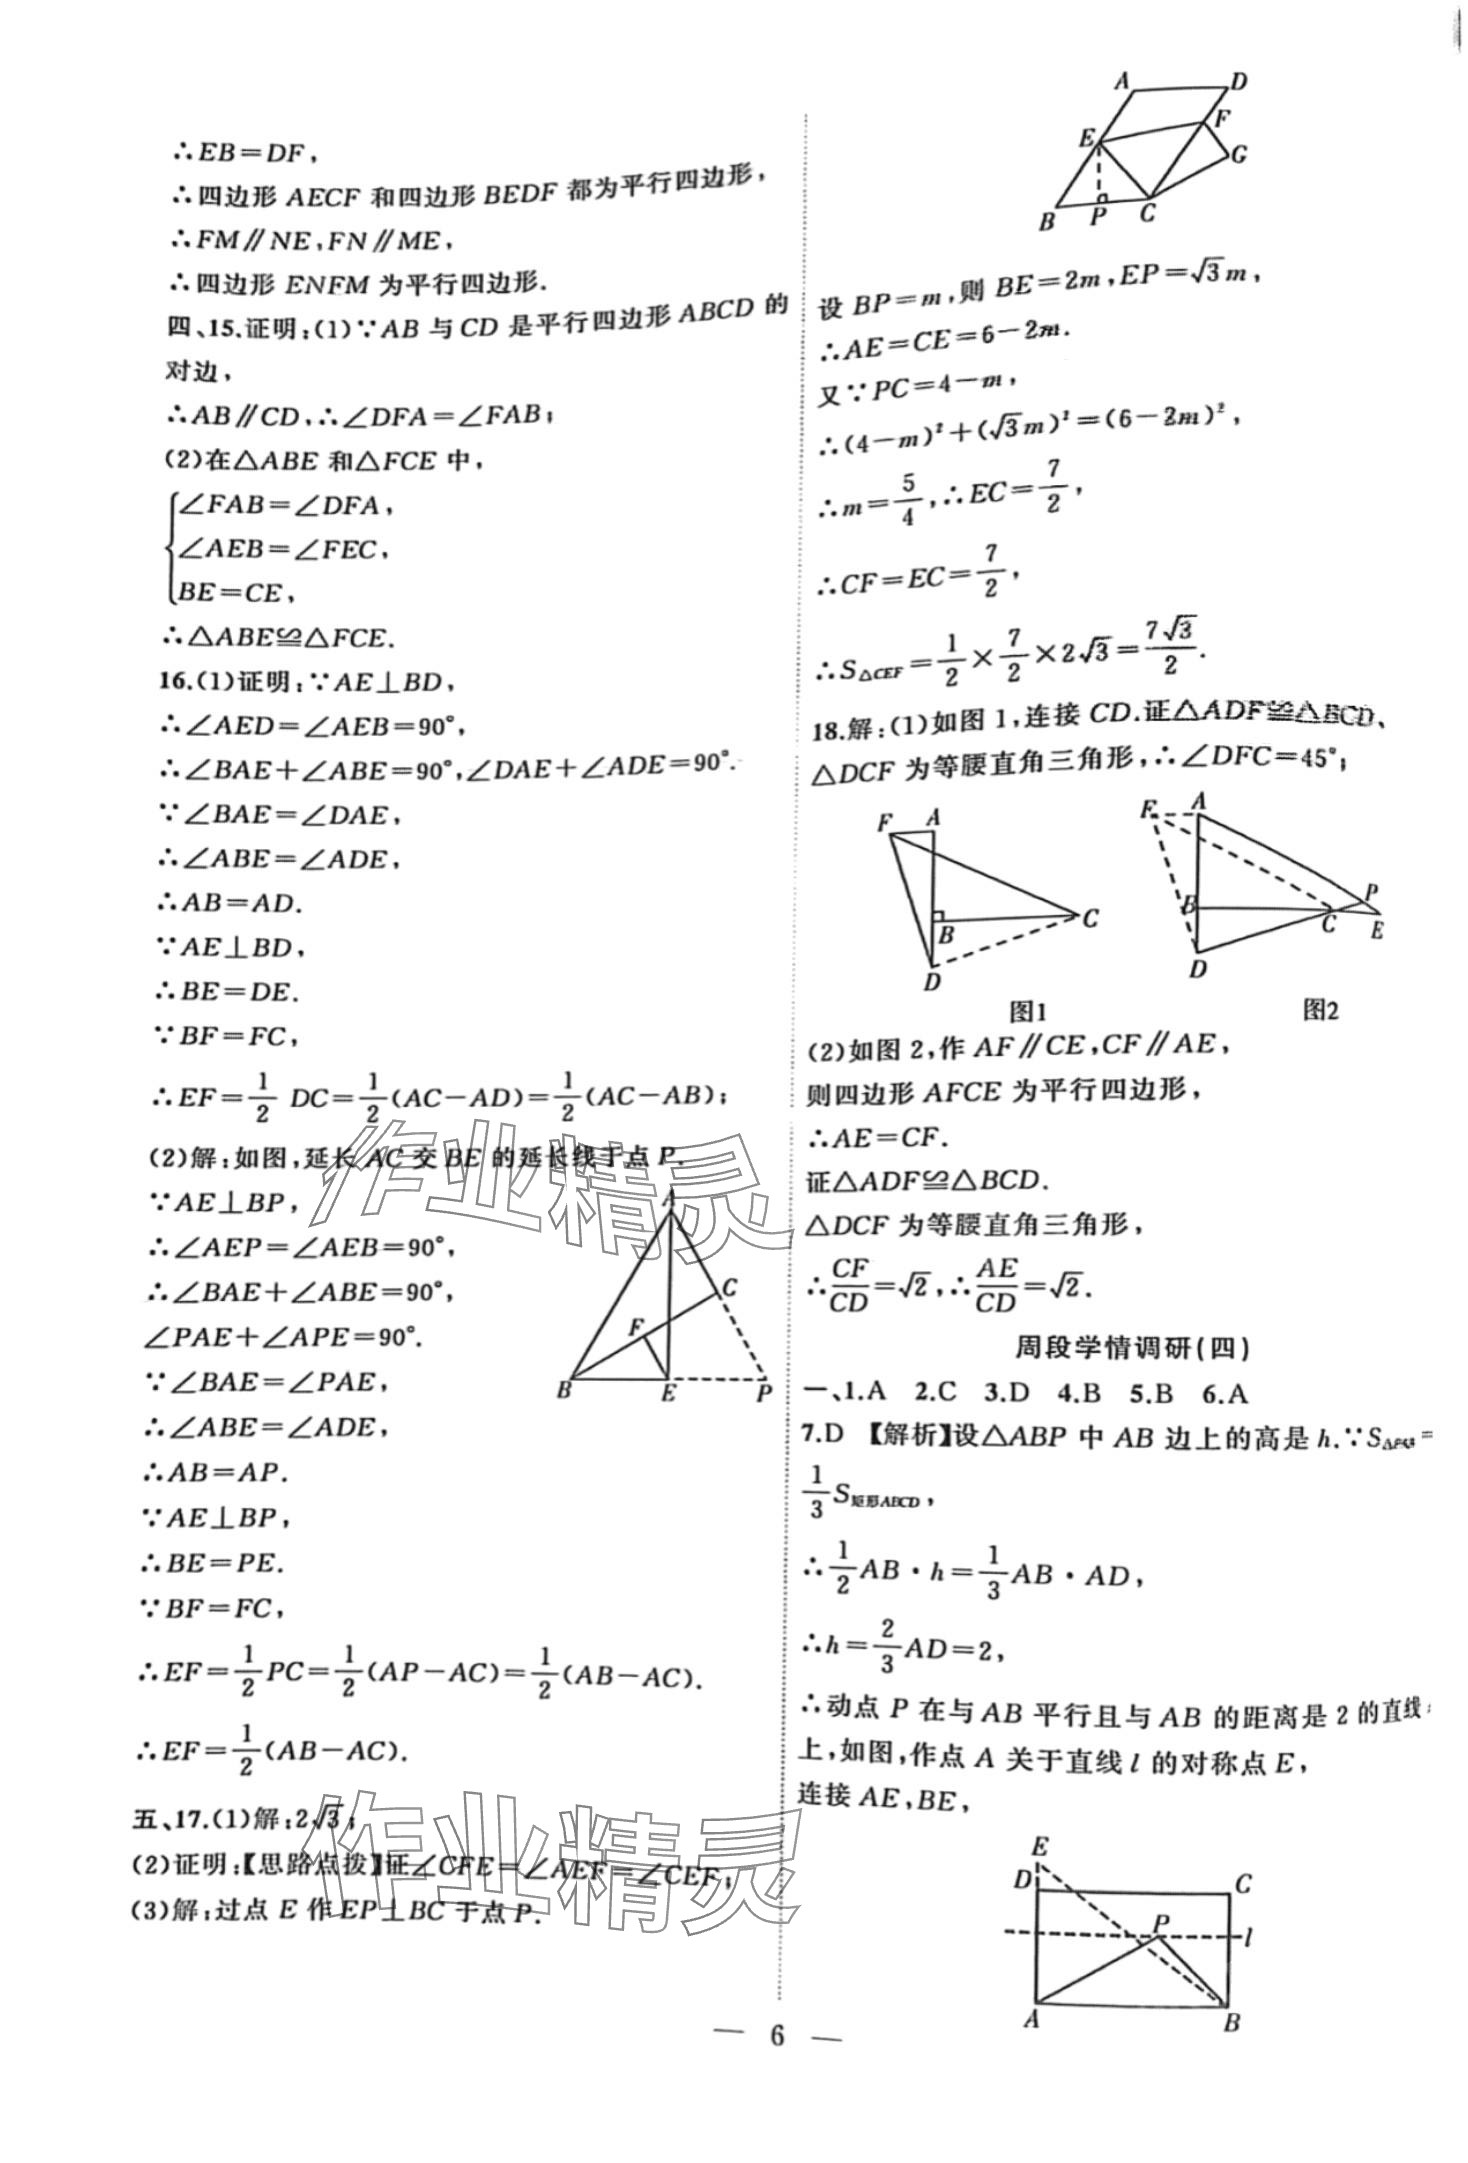 ∴EB=DF，
∴四边形 AECF 和四边形 BEDF 都为平行四边形，
∴FM∥NE，FN∥ME，
∴四边形 ENFM 为平行四边形.
四、15.证明：(1)∵AB 与 CD 是平行四边形 ABCD 的
对边，
∴AB∥CD，∴∠DFA=∠FAB；
(2)在△ABE 和△FCE 中，
∠FAB=∠DFA，
∠AEB=∠FEC，
BE=CE，
∴△ABE≌△FCE.
16.(1)证明：∵AE⊥BD，
∴∠AED=∠AEB=90°，
∴∠BAE+∠ABE=90°，∠DAE+∠ADE=90°.
∵∠BAE=∠DAE，
∴∠ABE=∠ADE，
∴AB=AD.
∵AE⊥BD，
∴BE=DE.
∵BF=FC，
∴EF=1/2 DC=1/2(AC-AD)=1/2(AC-AB)；
(2)解：如图，延长 AC 交 BE 的延长线于点 P.
∵AE⊥BP，
∴∠AEP=∠AEB=90°，
∴∠BAE+∠ABE=90°，
∠PAE+∠APE=90°.
∵∠BAE=∠PAE，
∴∠ABE=∠ADE，
∴AB=AP.
∵AE⊥BP，
∴BE=PE.
∵BF=FC，
∴EF=1/2PC=1/2(AP-AC)=1/2(AB-AC).
∴EF=1/2(AB-AC).
A
C
F
B E P
五、17.(1)解：2√3；
(2)证明：【思路点拨】证∠CFE=∠AEF=∠CEF；
(3)解：过点 E 作 EP⊥BC 于点 P.
A D
E F
G
B P C
设 BP=m，则 BE=2m，EP=√3m，
∴AE=CE=6-2m.
又∵PC=4-m，
∴(4-m)²+(√3m)²=(6-2m)²，
∴m=5/4，∴EC=7/2，
∴CF=EC=7/2，
∴S△CEF=1/2×7/2×2√3=7√3/2.
18.解：(1)如图 1，连接 CD.证△ADF≌△BCD、
△DCF 为等腰直角三角形，∴∠DFC=45°；
F A
B C
D
图1
F A
P
B C E
D
图2
(2)如图 2，作 AF∥CE，CF∥AE，
则四边形 AFCE 为平行四边形，
∴AE=CF.
证△ADF≌△BCD.
△DCF 为等腰直角三角形，
∴CF/CD=√2，∴AE/CD=√2.
周段学情调研(四)
一、1.A 2.C 3.D 4.B 5.B 6.A
7.D 【解析】设△ABP 中 AB 边上的高是 h.∵S△PAB=
1/3S矩形ABCD，
∴1/2AB·h=1/3AB·AD，
∴h=2/3AD=2，
∴动点 P 在与 AB 平行且与 AB 的距离是 2 的直线
上，如图，作点 A 关于直线 l 的对称点 E，
连接 AE，BE，
E
D C
P l
A B
— 6 —
作业精灵
作业精灵